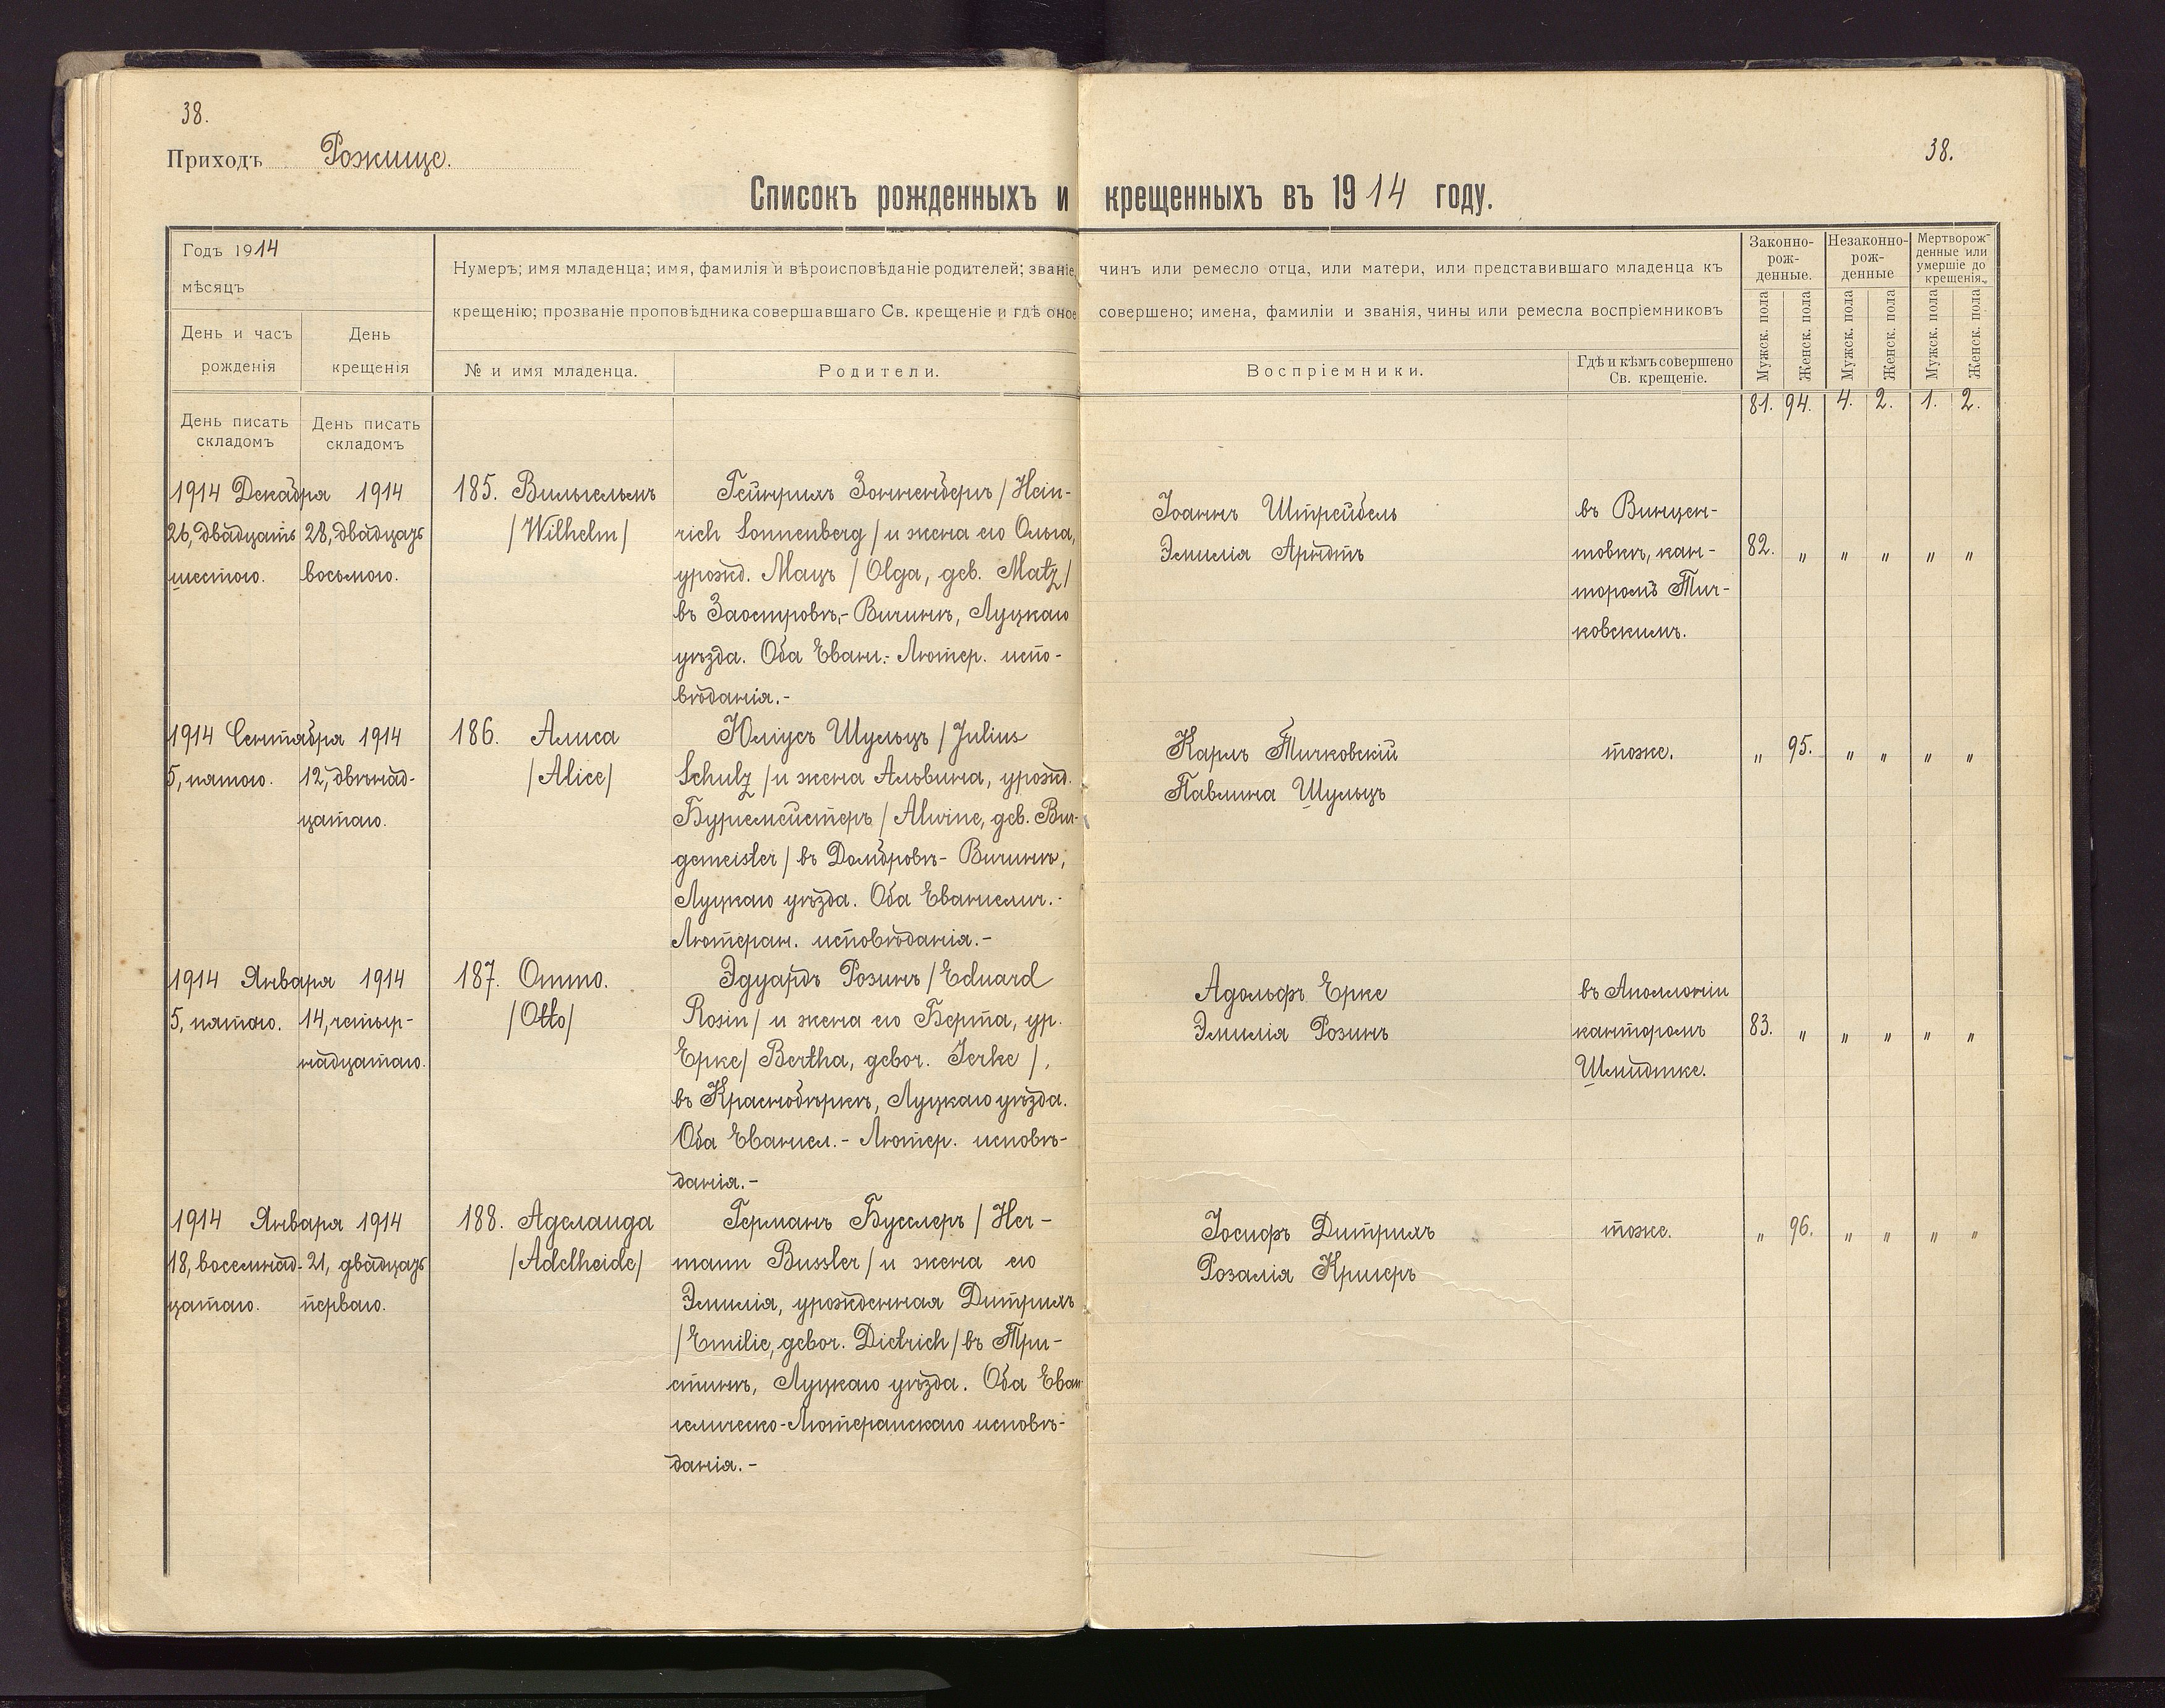 38.
Приходъ Рожище.
38.
Списокъ рожденныхъ и крещенныхъ въ 1914 году.
Годъ 1914
мѣсяцъ
День и часъ рожденія
День крещенія
Нумеръ; имя младенца; имя, фамилія и вѣроисповѣданіе родителей; званіе, чинъ или ремесло отца, или матери, или представившаго младенца къ
крещенію; прозваніе проповѣдника совершавшаго Св. крещеніе и гдѣ оное совершено; имена, фамиліи и званія, чины или ремесла воспріемниковъ
№ и имя младенца.
Родители.
Воспріемники.
Гдѣ и кѣмъ совершено
Св. крещеніе.
Законно-
рож-
денные.
Незаконно-
рож-
денные
Мертворож-
денные или
умершіе до
крещенія.
Мужск. пола
Женск. пола
Мужск. пола
Женск. пола
Мужск. пола
Женск. пола
День писать
складомъ
День писать
складомъ
81. 94. 4. 2. 1. 2.
1914 Декабря 1914
26, двадцать
шестого.
28, двадцать
восьмого.
185. Вильгельмъ
/Wilhelm/
Гейнрихъ Зонненбергъ / Hein-
rich Sonnenberg / и жена его Ольга,
урожд. Мацъ / Olga, geb. Matz /
въ Заостровѣ,- Вичинѣ, Луцкаго
уѣзда. Оба Еванг.- Лютер. испо-
вѣданія.-
Іоаннъ Штрейбель
Эмилія Арндтъ
въ Винцен-
товкѣ, кан-
торомъ Тич-
ковскимъ.
82. " " " " "
1914 Сентября 1914
5, пятого.
12, двѣнад-
цатаго.
186. Алиса
/Alice/
Юліусъ Шульцъ / Julius
Schulz / и жена Альвина, урожд.
Бургемейстеръ / Alwine, geb. Bur-
gemeister / въ Домбровѣ- Вичинѣ,
Луцкаго уѣзда. Оба Евангелич.-
Лютеран. исповѣданія.-
Карлъ Тичковскій
Павлина Шульцъ
тоже.
" 95. " " " "
1914 Января 1914
5, пятого.
14, четыр-
надцатаго.
187. Отто.
/Otto/
Эдуардъ Розинъ / Eduard
Rosin / и жена его Берта, ур.
Ерке / Bertha, gebor. Jerke /,
въ Краснобѣркѣ, Луцкаго уѣзда.
Оба Евангел.- Лютер. исповѣ-
данія.-
Адольфъ Ерке
Эмилія Розинъ
въ Аполлоніи
канторомъ
Шмидтке.
83. " " " " "
1914 Января 1914
18, восемнад-
цатаго.
21, двадцать
перваго.
188. Аделаида
/Adelheide/
Германъ Бусслеръ / Her-
mann Bussler / и жена его
Эмилія, урожденная Дитрихъ
/ Emilie, gebor. Dietrich / въ Три-
стинѣ, Луцкаго уѣзда. Оба Еван-
гелическо-Лютеранскаго исповѣ-
данія.-
Іосифъ Дитрихъ
Розалія Кригеръ
тоже.
" 96. " " " "